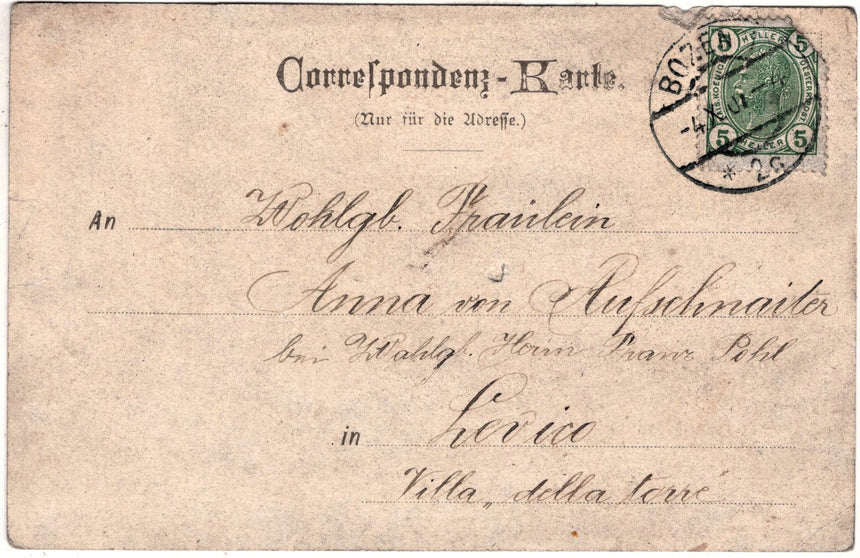 Correspondenz-Karte.
(Nur für die Adresse.)
BOZEN
-4.X.07-
* 2G
5 HELLER 5
5 HELLER 5
An Wohlgb. Fräulein
Anna von Aufschnaiter
bei Wohlgb. Herrn Franz Pohl
in Levico
Villa „ della torre"